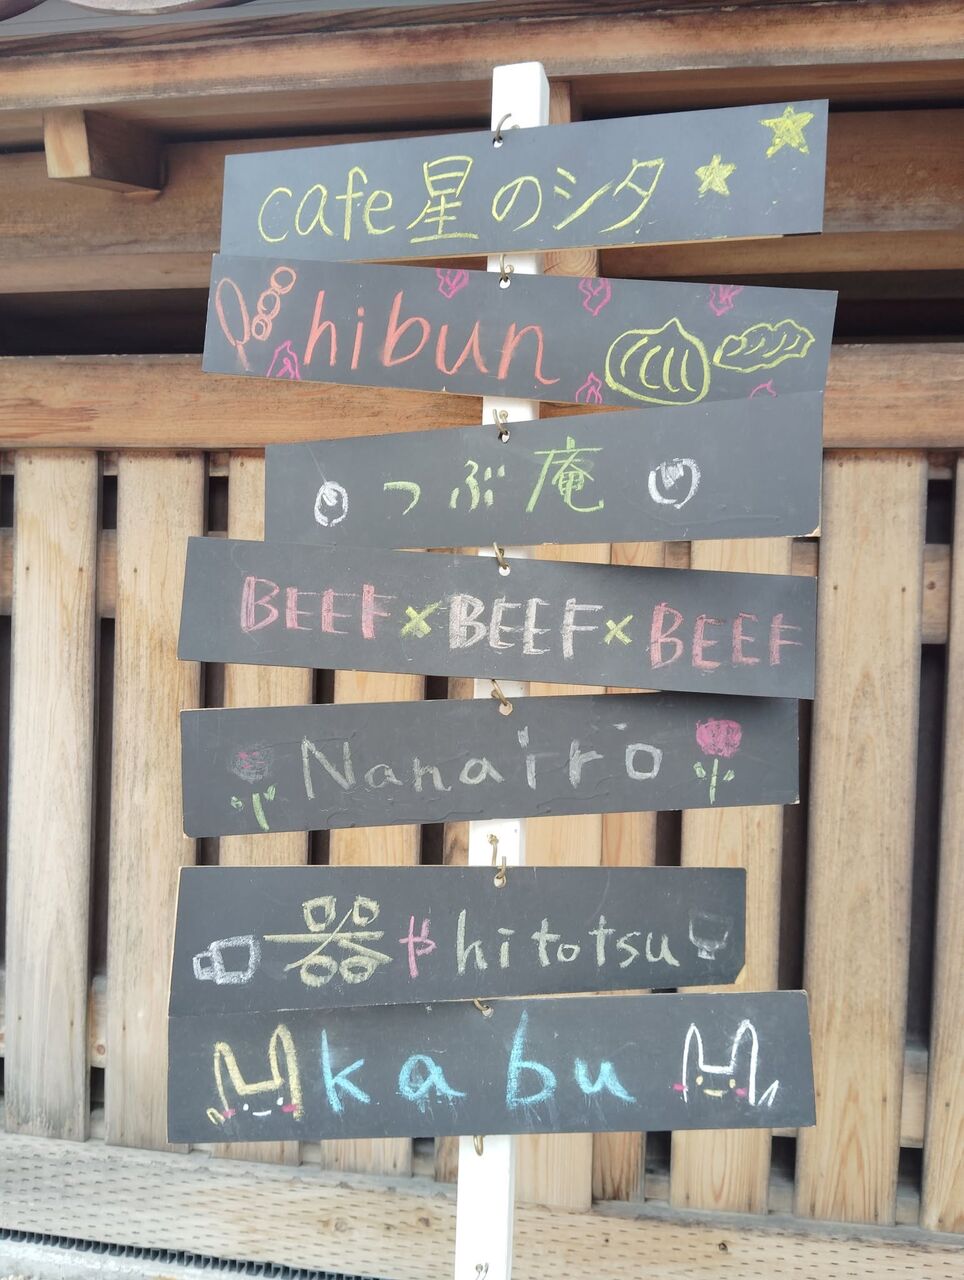 cafe星のシタ
hibun
つぶ庵
BEEF×BEEF×BEEF
Nanairo
器やhitotsu
kabu